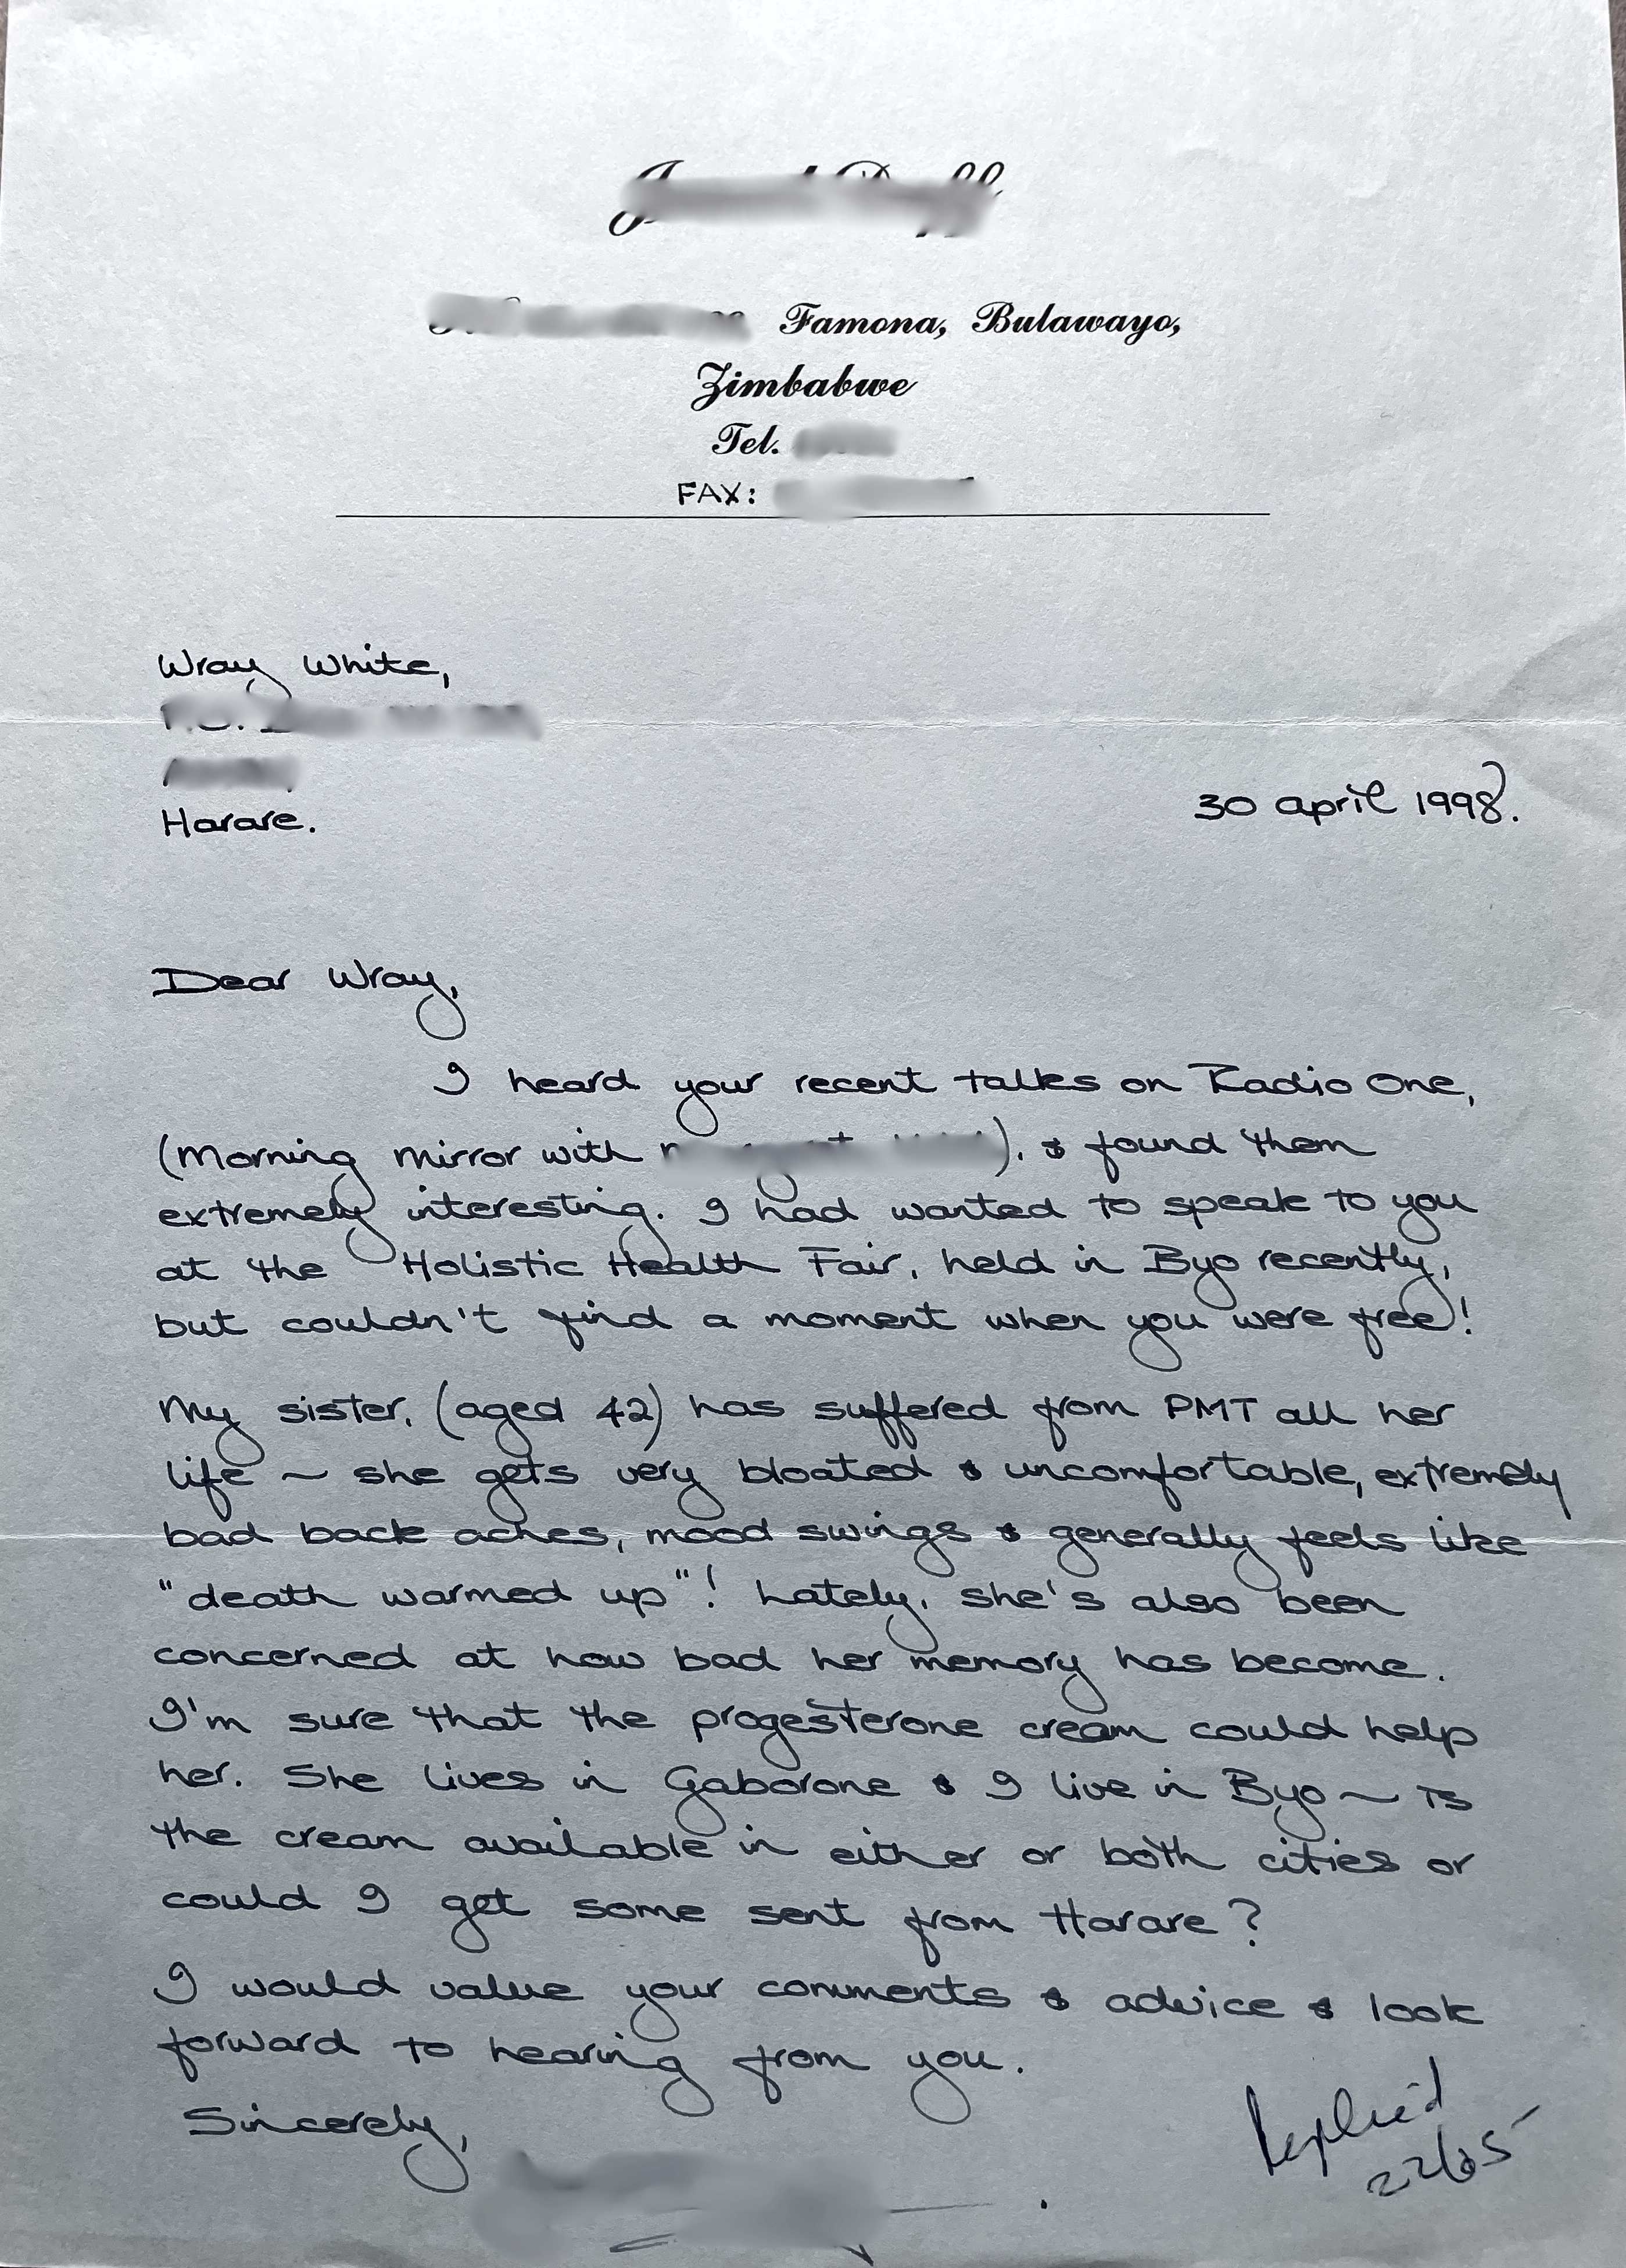 Famona, Bulawayo,
Zimbabwe
Tel.
FAX:
Wray White,
Harare.
30 April 1998.
Dear Wray,
I heard your recent talks on Radio One,
(Morning Mirror with ), & found them
extremely interesting. I had wanted to speak to you
at the Holistic Health Fair, held in Byo recently,
but couldn't find a moment when you were free!
My sister, (aged 42) has suffered from PMT all her
life ~ she gets very bloated & uncomfortable, extremely
bad back aches, mood swings & generally feels like
"death warmed up"! Lately, she's also been
concerned at how bad her memory has become.
I'm sure that the progesterone cream could help
her. She lives in Gaborone & I live in Byo ~ is
the cream available in either or both cities or
could I get some sent from Harare?
I would value your comments & advice & look
forward to hearing from you.
Sincerely,
Replied
22/05